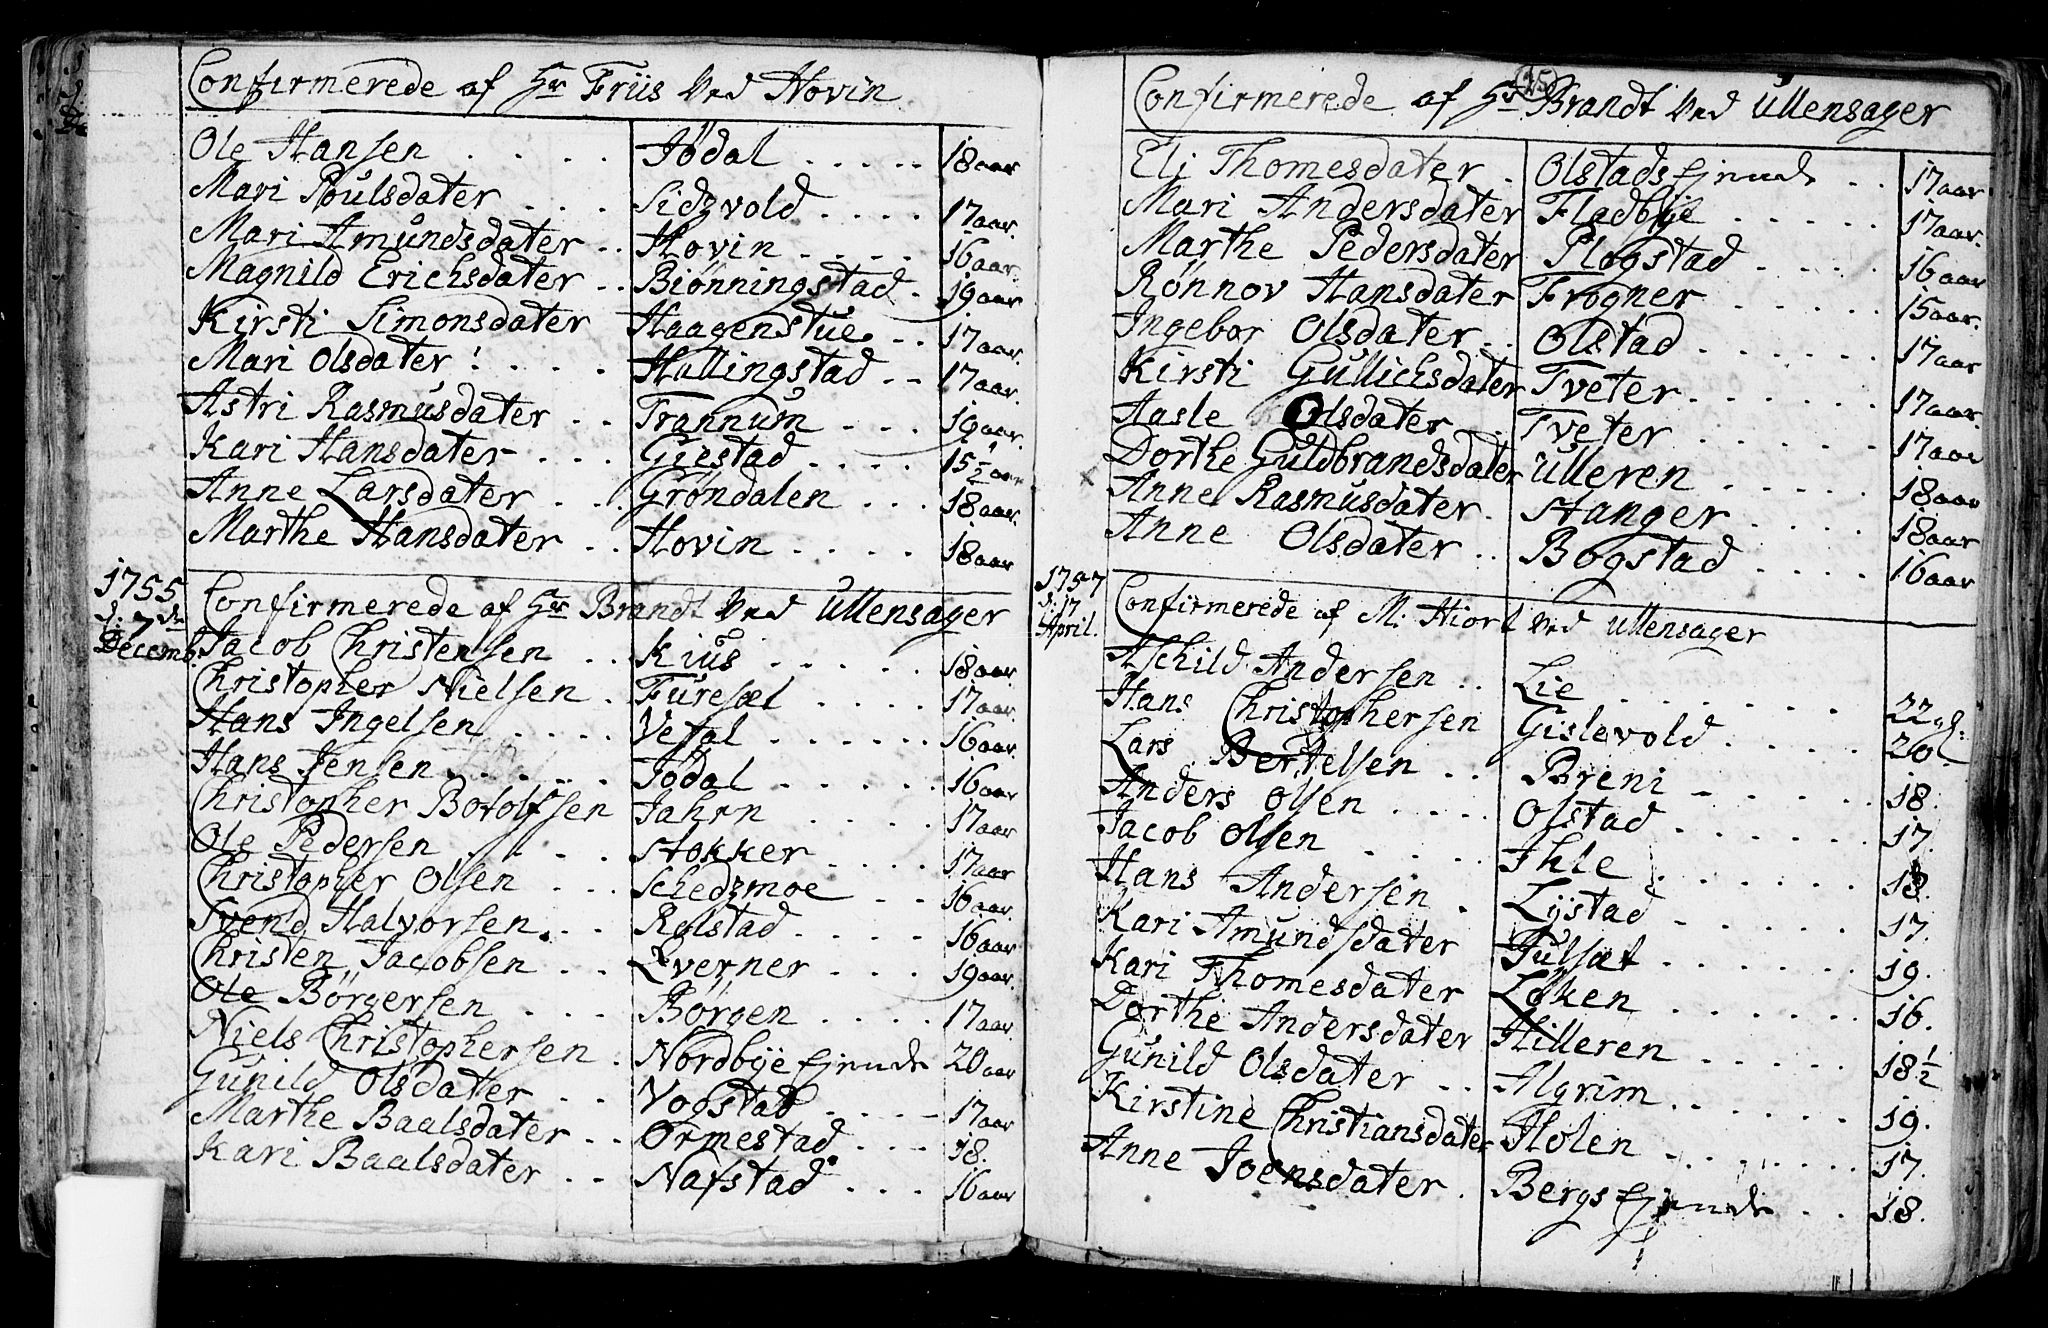 Confirmerede af Hr Friis Ved Hovin
Ole Hansen . . . . Jödal . . . . . 18 aar
Mari Poulsdater . . . Sidzvold . . . . 17 aar.
Mari Amundsdater . . Hovin . . . . 16 aar.
Magnild Erichsdater . . Biönningstad . 19 aar
Kirsti Simonsdater Haagenstue . . 17 aar.
Mari Olsdater . . . . Hallingstad . . 17 aar.
Astri Rasmusdater . . Trannum . . . 19 aar.
Kari Hansdater . . . Giestad . . . . 15 1/2 aar
Anne Larsdater . . . Gröndalen . . . 18 aar.
Marthe Hansdater . . Hovin . . . . 18 aar
1755
d: 7de
Decemb.
Confirmerede af Hr Brandt Ved Ullensager
Jacob Christensen . . Kius . . . . . 18 aar.
Christopher Nielsen . Furesæl . . . . 17 aar.
Hans Ingelsen . . . . Vesal . . . . . . 16 aar.
Hans Jensen . . . . . Jödal . . . . . 16 aar
Christopher Botolfsen Jahrn . . . . 17 aar
Ole Pedersen . . . . Stokker . . . . 17 aar
Christopher Olsen . . . Schedzmoe . . 16 aar.
Svend Halvorsen . . Ralstad . . . . 16 aar
Christen Jacobsen . . Lverner . . . 19 aar.
Ole Börgersen . . . Börgen . . . . 17 aar
Niels Christophersen . Nordbye Ejende 20 aar
Gunild Olsdater . . Vogstad . . . . 17 aar
Marthe Baalsdater . . Ormestad . . . 18.
Kari Baalsdater . . Nafstad . . . 16 aar
25
Confirmerede af Hr Brandt Ved Ullensager
Eli Thomesdater . Olstads Ejende . . 17 aar
Mari Andersdater Fladbye . . . . . 17 aar.
Marthe Pedersdater Plogstad . . . . 16 aar
Rönnov Hansdater Frogner . . . . . 15 aar.
Ingebor Olsdater . . Olstad . . . . . . 17 aar
Kirsti Gullichsdater Tveter . . . . . . 17 aar.
Aasle Olsdater . Tveter . . . . . . 17 aar
Dorthe Guldbrandsdater Ulleren . . . . . 18 aar
Anne Rasmusdater . Hanger . . . . 18 aar
Anne Olsdater . . Bogstad . . . . 16 aar
1757
d: 17
April.
Confirmerede af M. Hiort Ved Ullensager
Aschild Andersen . . Lie . . . . . . . . 22
Hans Christophersen Gislevold . . . . 20
Lars Bertelsen . . Breni . . . . . 18.
Anders Olsen . . . . Olstad . . . . . . 17.
Jacob Olsen . . . . Ihle . . . . . . 18.
Hans Andersen . Lystad . . . . . 17.
Kari Amundsdater Fulsæt . . . . . . 19.
Kari Thomesdater Løken . . . . . . 16.
Dorthe Andersdater Hilleren . . . . . 18 1/2
Gunild Olsdater . . Algrim . . . . . . 19.
Kirstine Christiansdater Holen . . . . . . . 17.
Anne Joensdater . Bergs Ejende . . 18.